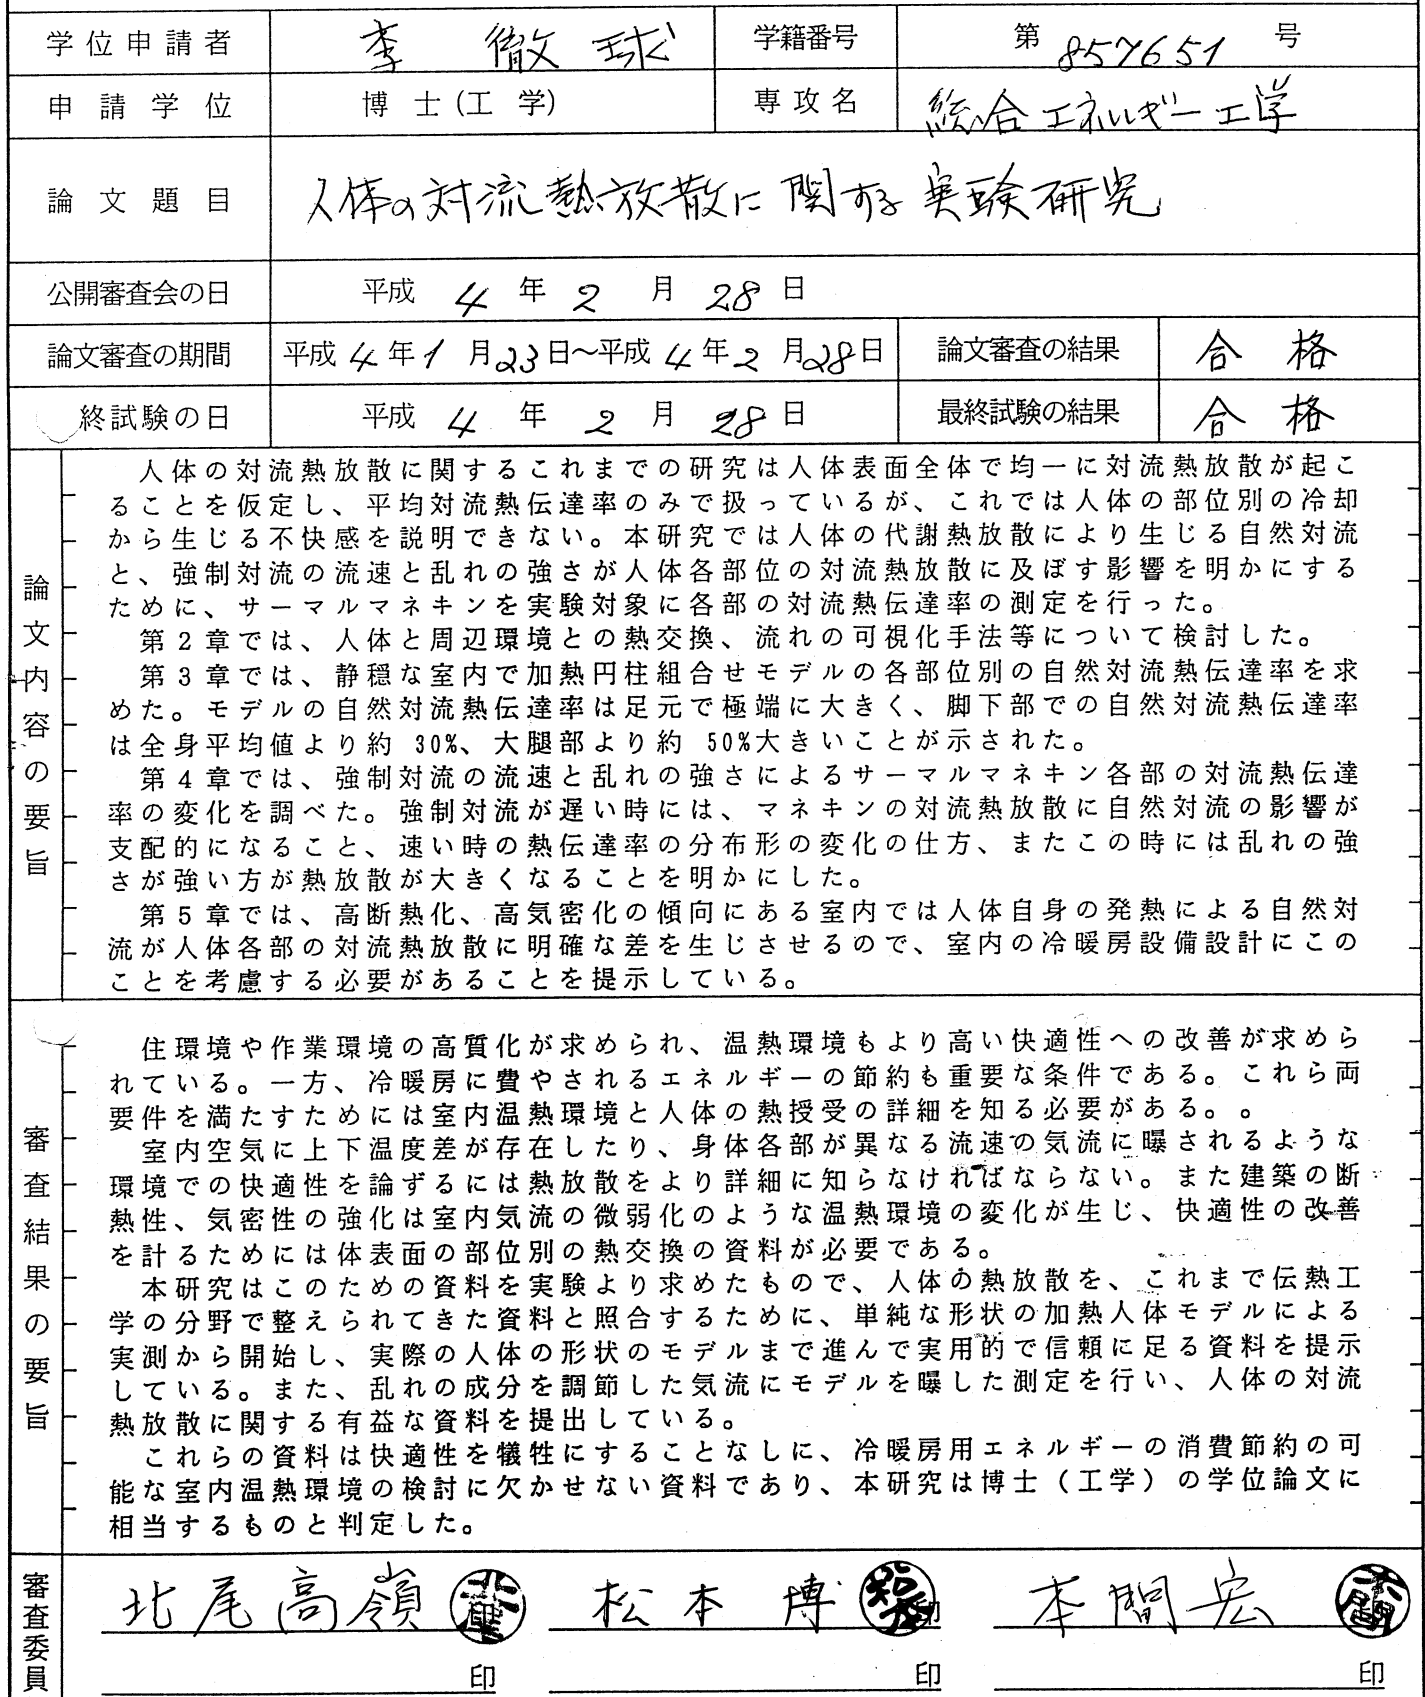 学位申請者 李 徹球 学籍番号 第 857651 号
申請学位 博士(工学) 専攻名 総合エネルギー工学
論文題目 人体の対流熱放散に関する実験研究
公開審査会の日 平成 4 年 2 月 28 日
論文審査の期間 平成 4 年 1 月 23 日～平成 4 年 2 月 28 日 論文審査の結果 合格
終試験の日 平成 4 年 2 月 28 日 最終試験の結果 合格
論文内容の要旨
人体の対流熱放散に関するこれまでの研究は人体表面全体で均一に対流熱放散が起こ
ることを仮定し、平均対流熱伝達率のみで扱っているが、これでは人体の部位別の冷却
から生じる不快感を説明できない。本研究では人体の代謝熱放散により生じる自然対流
と、強制対流の流速と乱れの強さが人体各部位の対流熱放散に及ぼす影響を明かにする
ために、サーマルマネキンを実験対象に各部の対流熱伝達率の測定を行った。
第2章では、人体と周辺環境との熱交換、流れの可視化手法等について検討した。
第3章では、静穏な室内で加熱円柱組合せモデルの各部位別の自然対流熱伝達率を求
めた。モデルの自然対流熱伝達率は足元で極端に大きく、脚下部での自然対流熱伝達率
は全身平均値より約 30%、大腿部より約 50%大きいことが示された。
第4章では、強制対流の流速と乱れの強さによるサーマルマネキン各部の対流熱伝達
率の変化を調べた。強制対流が遅い時には、マネキンの対流熱放散に自然対流の影響が
支配的になること、速い時の熱伝達率の分布形の変化の仕方、またこの時には乱れの強
さが強い方が熱放散が大きくなることを明かにした。
第5章では、高断熱化、高気密化の傾向にある室内では人体自身の発熱による自然対
流が人体各部の対流熱放散に明確な差を生じさせるので、室内の冷暖房設備設計にこの
ことを考慮する必要があることを提示している。
審査結果の要旨
住環境や作業環境の高質化が求められ、温熱環境もより高い快適性への改善が求めら
れている。一方、冷暖房に費やされるエネルギーの節約も重要な条件である。これら両
要件を満たすためには室内温熱環境と人体の熱授受の詳細を知る必要がある。。
室内空気に上下温度差が存在したり、身体各部が異なる流速の気流に曝されるような
環境での快適性を論ずるには熱放散をより詳細に知らなければならない。また建築の断
熱性、気密性の強化は室内気流の微弱化のような温熱環境の変化が生じ、快適性の改善
を計るためには体表面の部位別の熱交換の資料が必要である。
本研究はこのための資料を実験より求めたもので、人体の熱放散を、これまで伝熱工
学の分野で整えられてきた資料と照合するために、単純な形状の加熱人体モデルによる
実測から開始し、実際の人体の形状のモデルまで進んで実用的で信頼に足る資料を提示
している。また、乱れの成分を調節した気流にモデルを曝した測定を行い、人体の対流
熱放散に関する有益な資料を提出している。
これらの資料は快適性を犠牲にすることなしに、冷暖房用エネルギーの消費節約の可
能な室内温熱環境の検討に欠かせない資料であり、本研究は博士（工学）の学位論文に
相当するものと判定した。
審査委員 北尾高嶺 印 松本 博 印 本間 宏
印 印 印